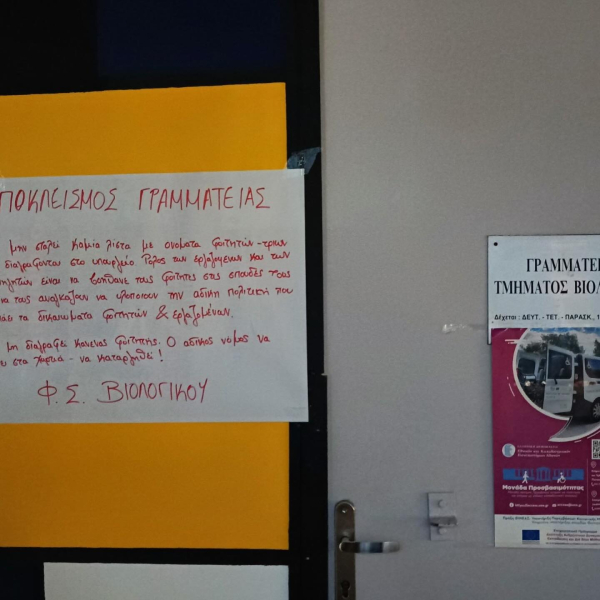 ΠΟΚΛΕΙΣΜΟΣ ΓΡΑΜΜΑΤΕΙΑΣ
μην σταλεί καμία λίστα με ονόματα φοιτητών-τριων
διαγράφονται στο υπουργείο. Ρόλος των εργαζομένων και των
είναι να βοηθάνε τους φοιτητές στις σπουδές τους
να τους αναγκάζουν να υλοποιούν την άδικη πολιτική που
τα δικαιώματα φοιτητών & εργαζομένων.
μη διαγραφεί κανένας φοιτητής. Ο άδικος νόμος να
στα χαρτιά - να καταργηθεί!
Φ.Σ. ΒΙΟΛΟΓΙΚΟΥ
ΓΡΑΜΜΑΤΕΙ
ΤΜΗΜΑΤΟΣ ΒΙΟΛ
Δέχεται : ΔΕΥΤ. - ΤΕΤ. - ΠΑΡΑΣΚ., 1
Μονάδα Προσβασιμότητας